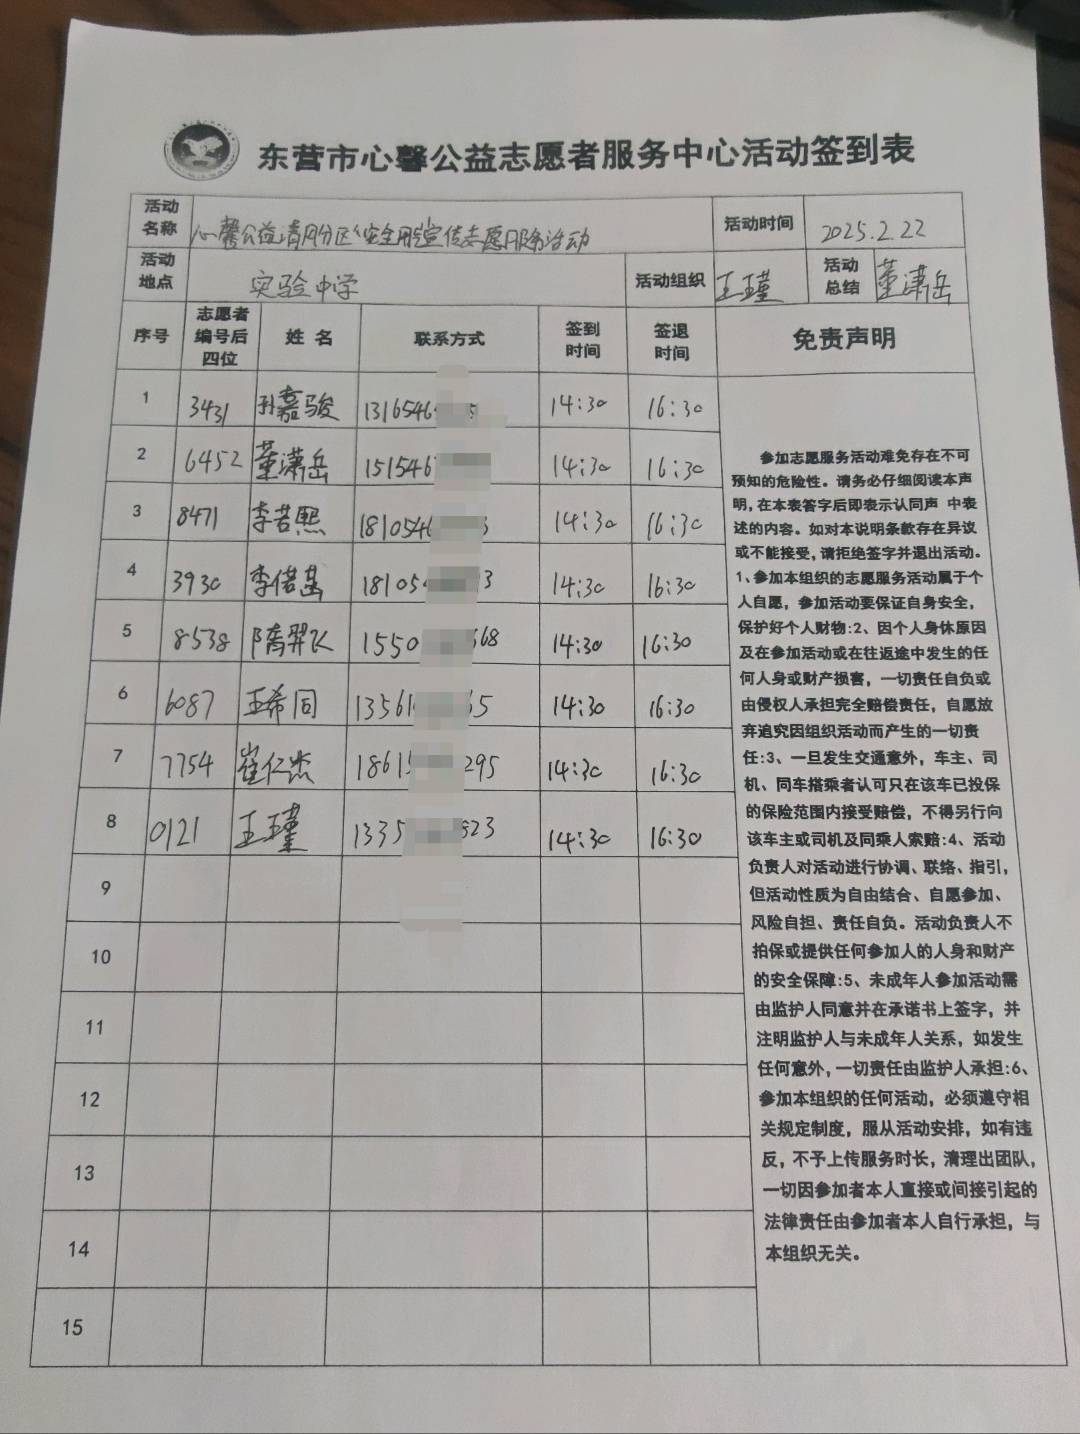 东营市心馨公益志愿者服务中心活动签到表
活动名称 心馨公益清风分区《安全用 宣传志愿服务活动 活动时间 2025.2.22
活动地点 实验中学 活动组织 王瑾 活动总结 董潇岳
序号 志愿者编号后四位 姓名 联系方式 签到时间 签退时间 免责声明
1 3431 孙嘉骏 1316546 14:30 16:30
2 6452 董潇岳 151546 14:30 16:30
3 8471 李若熙 1810546 14:30 16:30
4 3930 李偌菡 18105 3 14:30 16:30
5 8538 隋羿飞 1550 668 14:30 16:30
6 6087 王希同 13561 65 14:30 16:30
7 7754 崔仁杰 1861 295 14:30 16:30
8 0121 王瑾 1335 523 14:30 16:30
9
10
11
12
13
14
15
参加志愿服务活动难免存在不可
预知的危险性。请务必仔细阅读本声
明，在本表签字后即表示认同声 中表
述的内容。如对本说明条款存在异议
或不能接受，请拒绝签字并退出活动。
1、参加本组织的志愿服务活动属于个
人自愿，参加活动要保证自身安全，
保护好个人财物:2、因个人身体原因
及在参加活动或在往返途中发生的任
何人身或财产损害，一切责任自负或
由侵权人承担完全赔偿责任，自愿放
弃追究因组织活动而产生的一切责
任:3、一旦发生交通意外，车主、司
机、同车搭乘者认可只在该车已投保
的保险范围内接受赔偿，不得另行向
该车主或司机及同乘人索赔:4、活动
负责人对活动进行协调、联络、指引，
但活动性质为自由结合、自愿参加、
风险自担、责任自负。活动负责人不
拍保或提供任何参加人的人身和财产
的安全保障:5、未成年人参加活动需
由监护人同意并在承诺书上签字，并
注明监护人与未成年人关系，如发生
任何意外，一切责任由监护人承担:6、
参加本组织的任何活动，必须遵守相
关规定制度，服从活动安排，如有违
反，不予上传服务时长，清理出团队，
一切因参加者本人直接或间接引起的
法律责任由参加者本人自行承担，与
本组织无关。